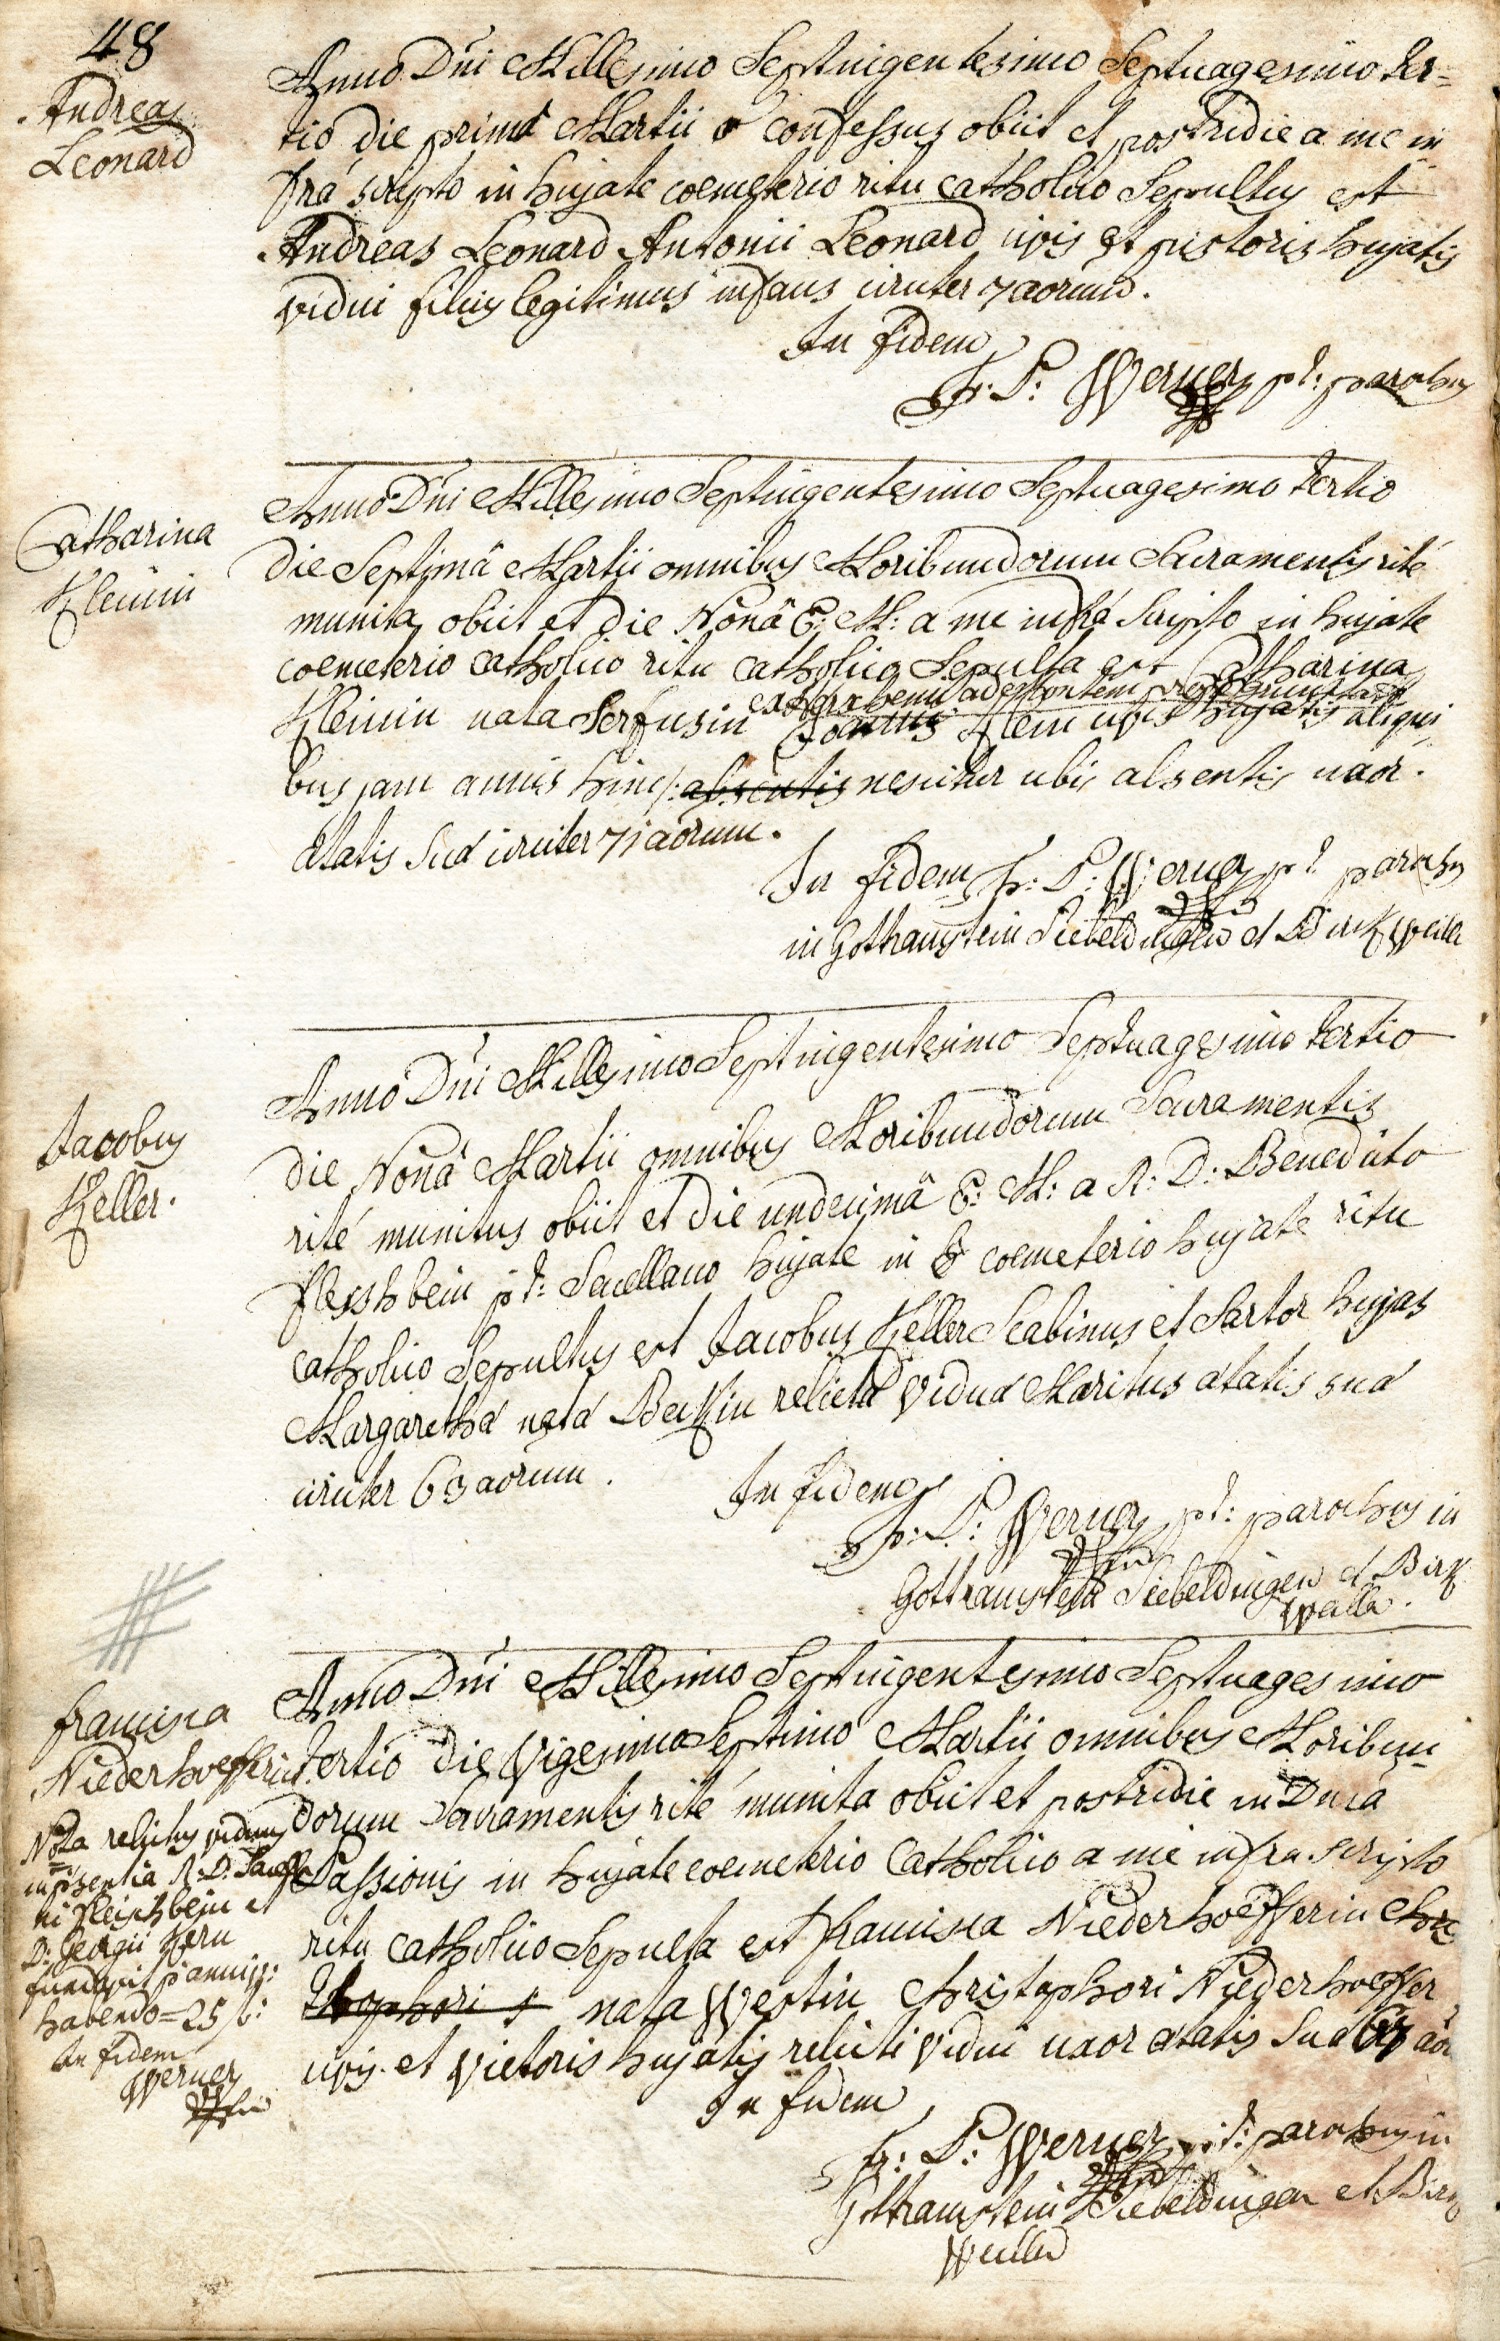 48
Andreas
Leonard
Anno Dni Millesimo Septingentesimo Septuagesimo ter-
tio die prima Martii confessus obiit et postridie a me in
fra scripto in hujate coemeterio ritu catholico Sepultus est
Andreas Leonard Antonii Leonard civis et pistoris hujatis
vidui filius legitimus infans circiter 7 aorum.
In fidem
Fr: P: Werner pt: parochus
Catharina
Kleinin
Anno Dni Millesimo Septingentesimo Septuagesimo tertio
die Septimâ Martii omnibus Moribundorum Sacramentis rité
munita obiit et die Nonâ E: M: a me infrá Scripto in hujate
coemeterio catholico ritu catholico Sepulta est Catharina
Kleinin nata Serfusin Klein civis hujatis aliqui
bus jam annis hinc /: absentis nescitur ubi, absentis uxor.
ætatis suæ circiter 71 aorum.
In fidem Fr: P: Werner pt parochus
in Gothramstein Siebeldingen et Birckweiller
Jacobus
Keller.
Anno Dni Millesimo Septingentesimo Septuagesimo tertio
die Nonâ Martii omnibus Moribundorum Sacramentis
rité munitus obiit et die undecimâ E: M: a R: D: Benedicto
fleischbein pt: Sacellano hujate in coemeterio hujate ritu
catholico Sepultus est Jacobus Keller Scabinus et Sartor hujas
Margarethæ natæ Beckin relictæ viduæ Maritus ætatis suæ
circiter 63 aorum.
In fidem
Fr: P: Werner pt: parochus in
Gottramstein Siebeldingen et Birck
Weiller.
francisca
Niederhoefferin
Anno Dni Millesimo Septingentesimo Septuagesimo
tertio die Vigesimo Septimo Martii omnibus Moribun-
dorum Sacramentis rité munita obiit et postridie in Dnica
Passionis in hujate coemeterio Catholico a me infra scripto
ritu catholico Sepulta est francisca Niederhoefferin Chri
stophori nata Westin Christophori Niederhoeffer
civis et vietoris hujatis relicti vidui uxor ætatis suæ aor
In fidem
Fr: P: Werner pt: parochus in
Gottramstein Siebeldingen et Birck
Weiller
Nota relictus viduus
in psentia R: D: Sacella
ni Fleischbein et
D: Georgii Kern
fundavit p anniv:
habendo = 25 f:
In fidem
Werner